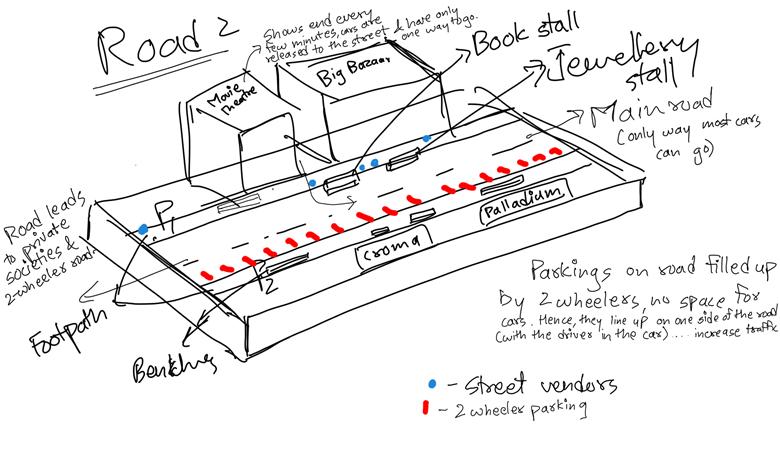 Road 2
Shows end every
few minutes, cars are
released to the street & have only
one way to go.
Book stall
Jewellery
stall
Big Bazaar
Movie
Theatre
Main road
(only way most cars
can go)
P1
Road leads
to private
societies &
2-wheeler road.
Palladium
Croma
P2
Footpath
Benches
Parkings on road filled up
by 2 wheelers, no space for
cars. Hence, they line up on one side of the road
(with the driver in the car).... increase traffic
- street vendors
- 2 wheeler parking